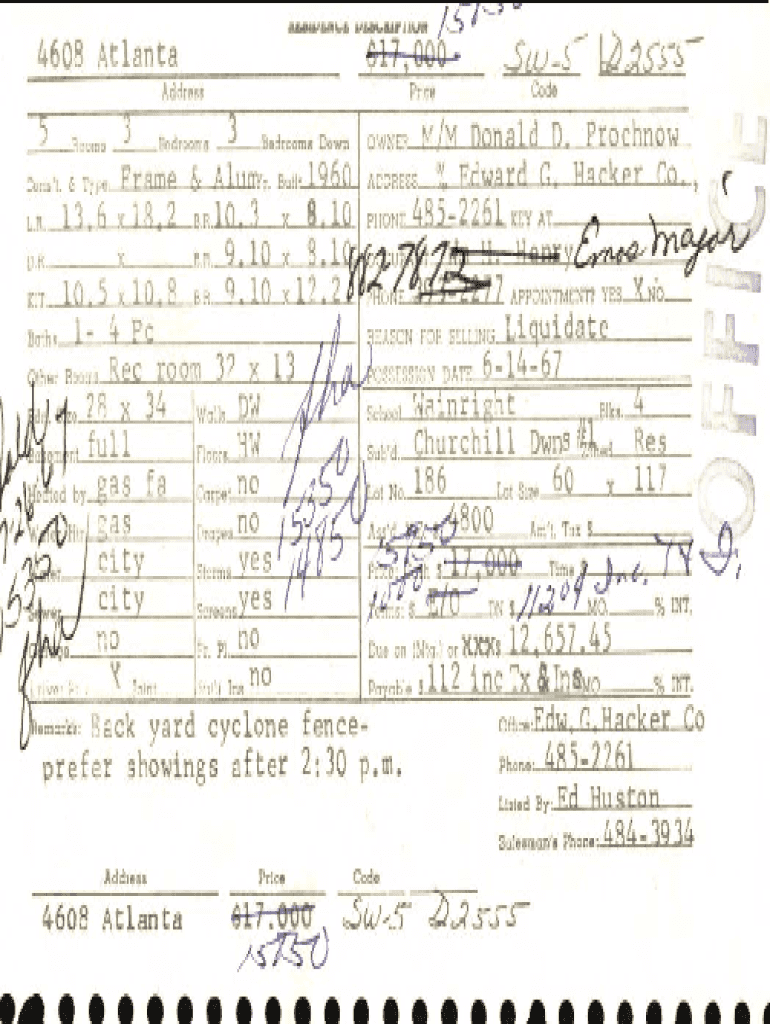 RESIDENCE DESCRIPTION 15750
4608 Atlanta $17,000 SW-5 D2555
Address Price Code
5 Rooms 3 Bedrooms 3 Bedrooms Down OWNER M/M Donald D. Prochnow
Const. & Type Frame & Alum Yr. Built 1960 ADDRESS % Edward G. Hacker Co.,
L.R. 13.6 x 18.2 B.R. 10.3 x 8.10 PHONE 485-2261 KEY AT
D.R. x B.R. 9.10 x 8.10 Henry Emos Major
KIT. 10.5 x 10.8 B.R. 9.10 x 12.2 882-7872 PHONE APPOINTMENT? YES X NO
Baths 1- 4 Pc REASON FOR SELLING Liquidate
Other Rooms Rec room 32 x 13 POSSESSION DATE 6-14-67
28 x 34 Walls DW School Wainright Blks. 4
Basement full Floors HW Sub'd. Churchill Dwns #1 Zoned Res
Heated by gas fa Carpet no Lot No. 186 Lot Size 60 x 117
gas Drapes no Ass'd 4800 Am't. Tax $
Water city Storms yes $ 17,000 Time
Sewer city Screens yes Terms: $ DN $ MO. % INT.
no Fr. Pl. no Due on (Mtg.) or XXX $ 12,657.45
X Joint no Payable $ 112 inc Tx & Ins MO % INT.
fha
15350
14850
15750
1500
11204 Inc. T & I.
Sold
7-26-67
15350
fha
Remarks: Back yard cyclone fence-
prefer showings after 2:30 p.m.
Office: Edw. G. Hacker Co
Phone: 485-2261
Listed By: Ed Huston
Salesman's Phone: 484-3934
Address Price Code
4608 Atlanta $17.000 SW-5 D2555
15750
OFFICE